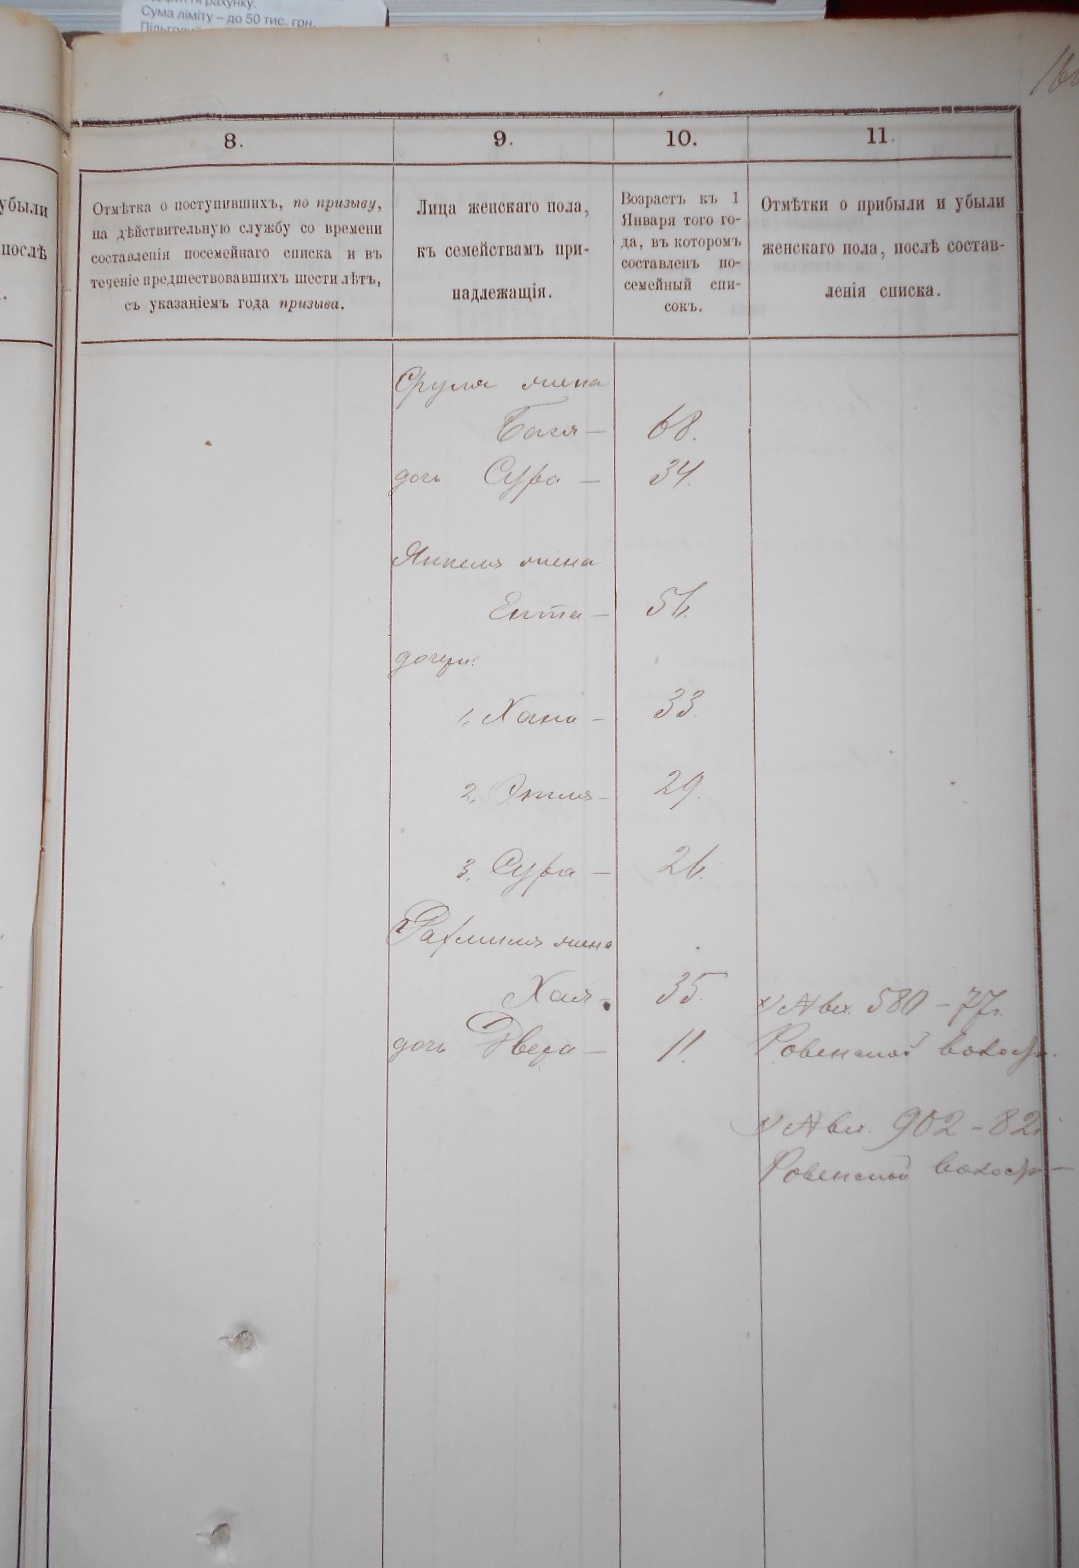 Сума ліміту – до 50 тис. грн.
убыли
послѣ
8.
9.
10.
11.
Отмѣтка о поступившихъ, по призыву,
на дѣйствительную службу со времени
составленія посемейнаго списка и въ
теченіе предшествовавшихъ шести лѣтъ,
съ указаніемъ года призыва.
Лица женскаго пола,
къ семействамъ при-
надлежащія.
Возрастъ къ 1
Января того го-
да, въ которомъ
составленъ по-
семейный спи-
сокъ.
Отмѣтки о прибыли и убыли
женскаго пола, послѣ состав-
ленія списка.
Сруля жена
Бася – 68.
дочь Сура – 34.
Янкеля жена
Ента – 56.
дочери:
1, Хана – 33.
2, Этля – 29.
3, Сура – 26.
Рахмиля жена
Хая 35.
дочь Двера – 11.
580 – 77.
Ровенской
902 – 82
Ровенской